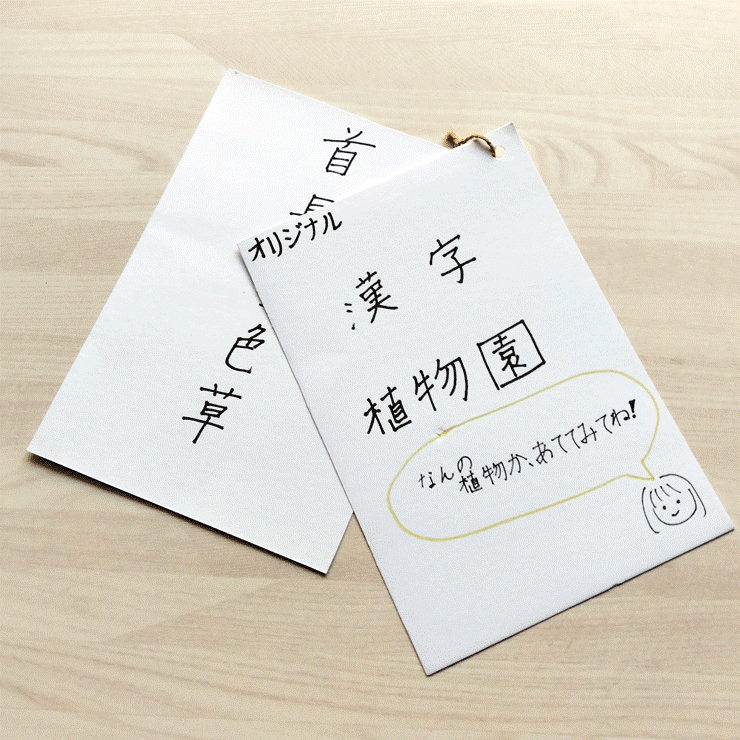 オリジナル
漢字
植物園
なんの植物か、あててみてね!
首
色草